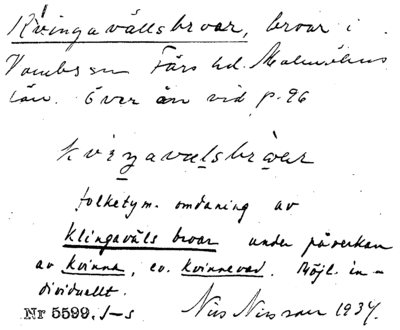 Kvingavällsbroar, broar i
Vombs sn Färs hd. Malmöhus
län. Över ån vid p. 96
kviŋavalsbrear
folketym. omdaning av
klingaväls broar under påverkan
av kvinna, ev. kvinnevad. Möjl. in-
dividuellt.
Nr 5599. J-s Nils Nilsson 1934.